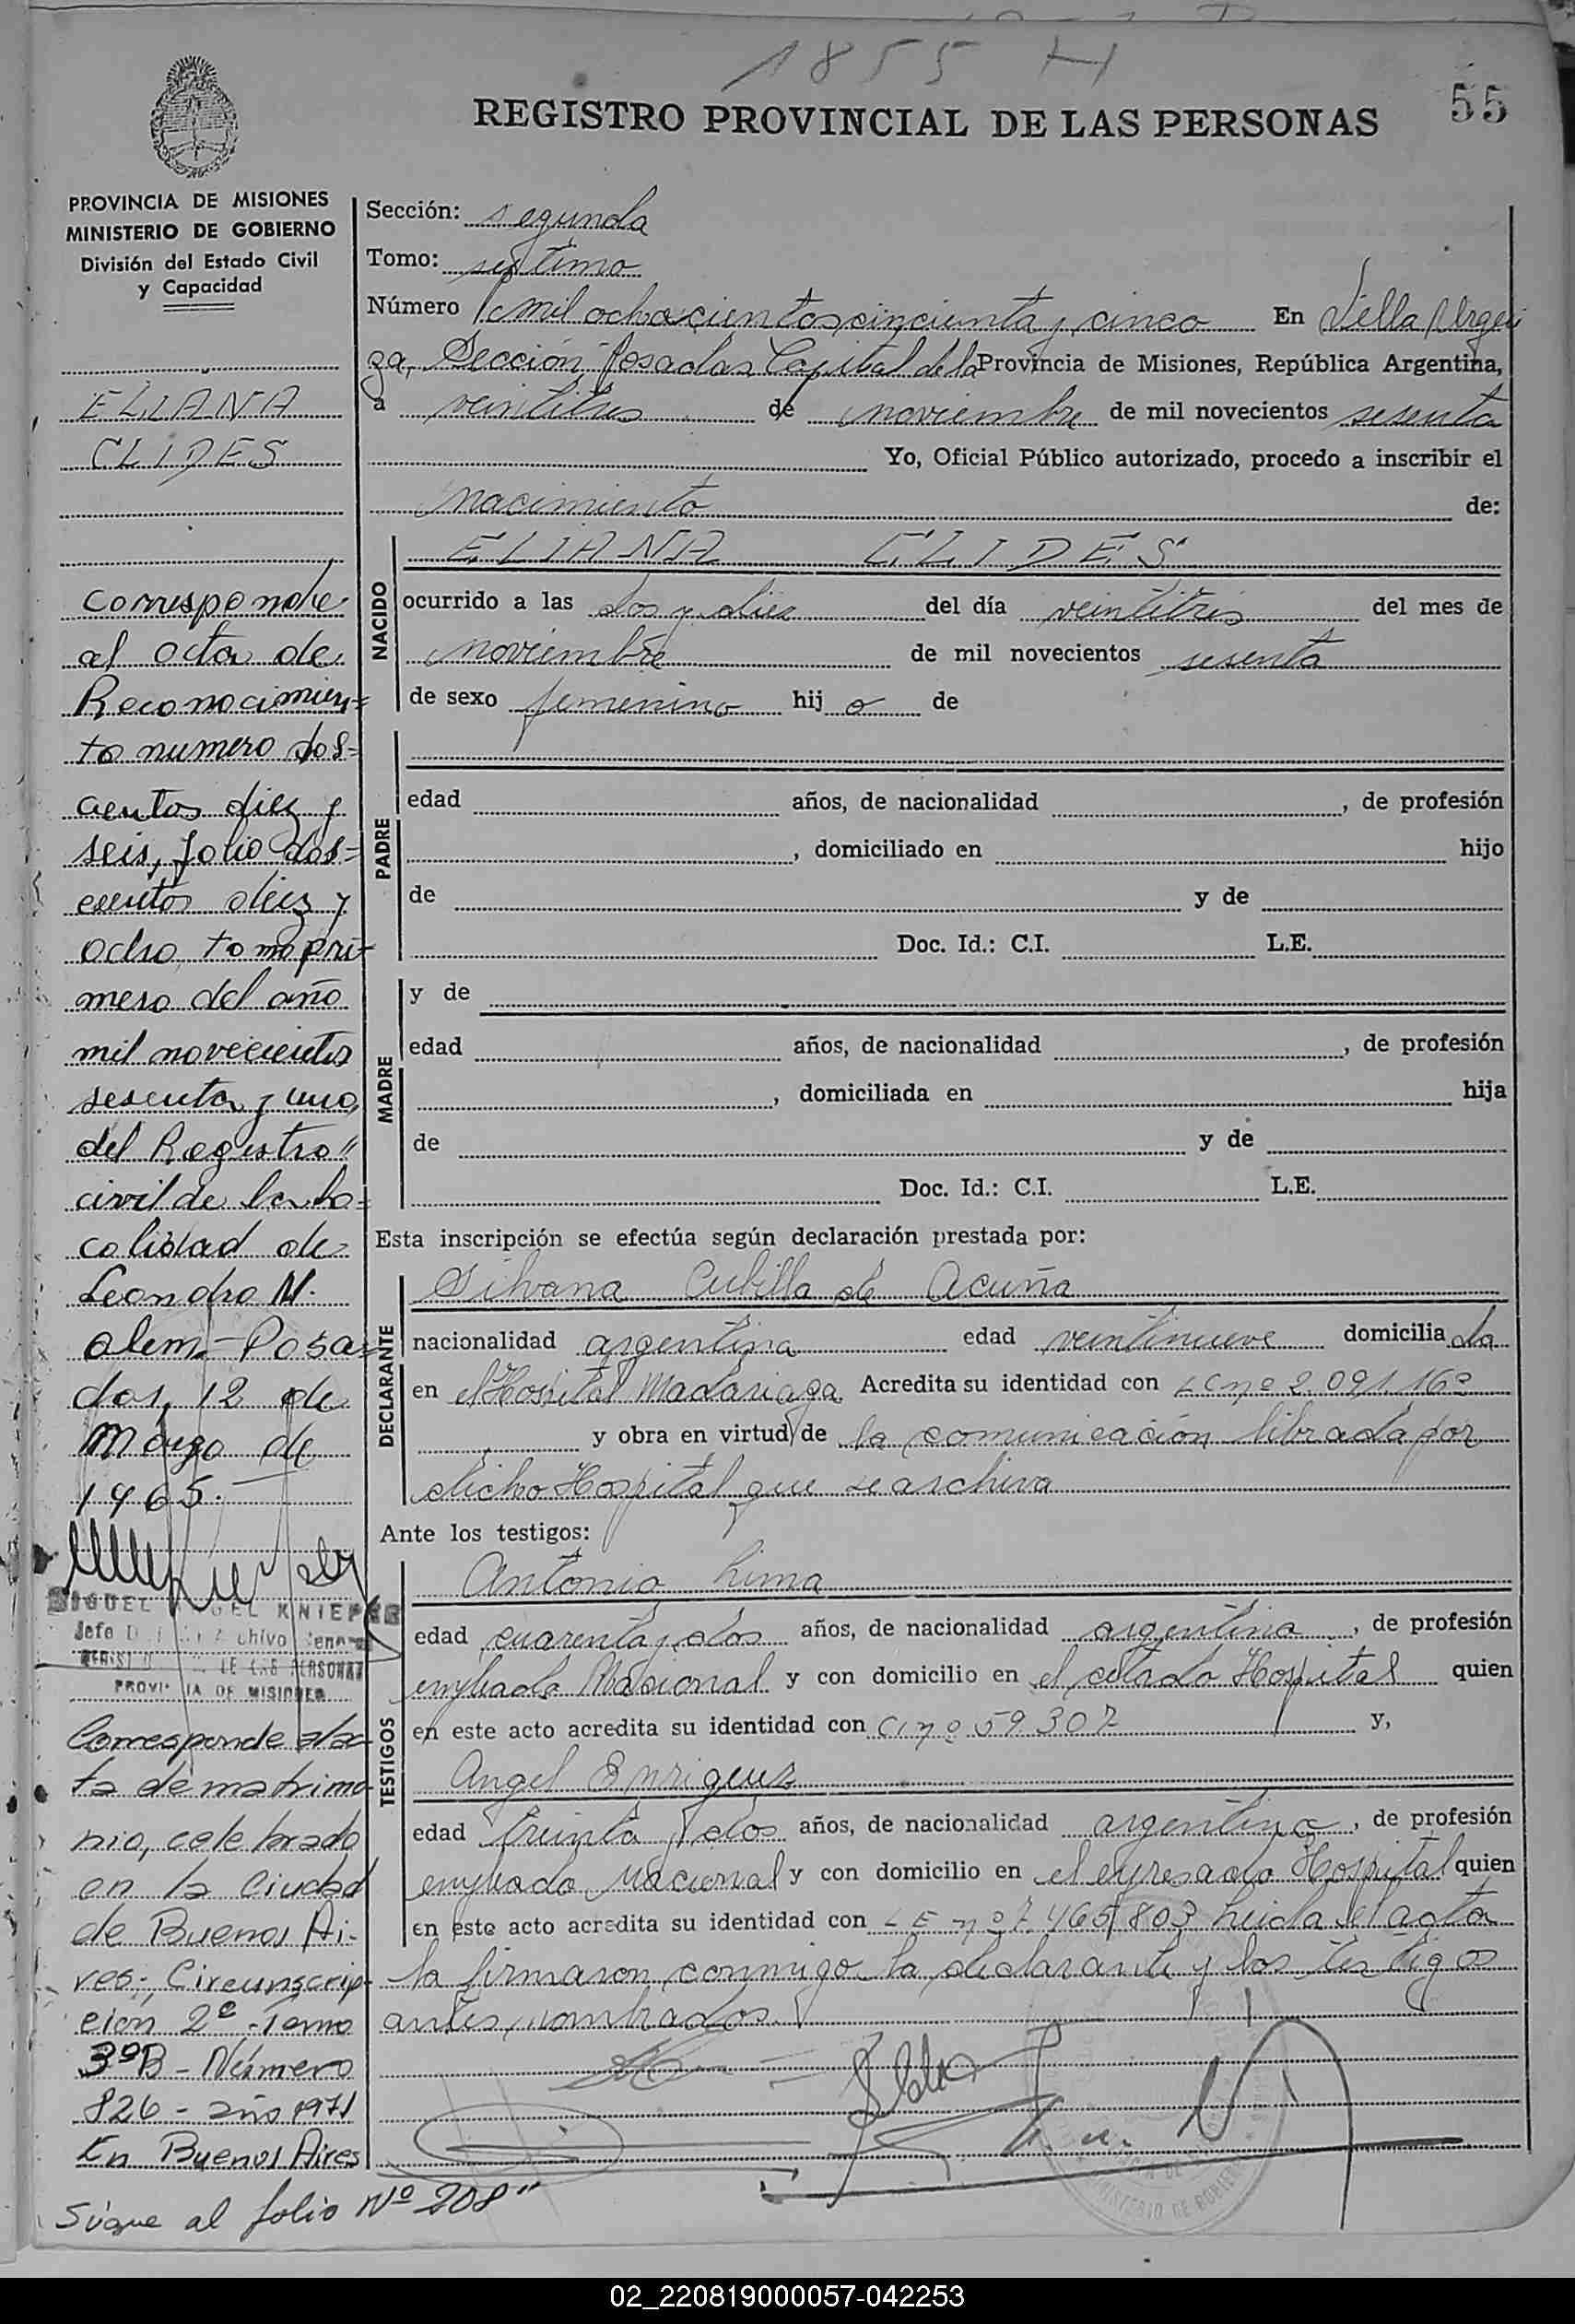 1855 H
55
REGISTRO PROVINCIAL DE LAS PERSONAS
PROVINCIA DE MISIONES
MINISTERIO DE GOBIERNO
División del Estado Civil
y Capacidad
ELIANA
CLIDES
Corresponde
al acta de
Reconocimien=
to numero dos=
cientos diez y
seis, folio dos=
cientos diez y
ocho, tomo pri-
mero del año
mil novecientos
sesenta y uno,
del Registro"
civil de la lo=
calidad de
Leandro N.
Alem.- Posa=
das, 12 de
Marzo de
1965.
MIGUEL ANGEL KNIEPER
Jefe Archivo General
REGIST DE LAS PERSONAS
PROVINCIA DE MISIONES
Corresponde al ac-
ta de matrimo-
nio, celebrado
en la Ciudad
de Buenos Ai-
res; Circunscrip-
ción 2ª, Tomo
3º B - Número
826 - año 1971
En Buenos Aires
Sigue al folio Nº 208"
Sección: segunda
Tomo: septimo
Número mil ochocientos cincuenta y cinco En Villa Urqui
za, Sección Posadas Capital de la Provincia de Misiones, República Argentina,
a veintitres de noviembre de mil novecientos sesenta
Yo, Oficial Público autorizado, procedo a inscribir el
nacimiento de:
NACIDO
ELIANA CLIDES
ocurrido a las dos y diez del día veintitrés del mes de
noviembre de mil novecientos sesenta
de sexo femenino hij a de
PADRE
edad años, de nacionalidad , de profesión
, domiciliado en hijo
de y de
Doc. Id.: C.I. L.E.
MADRE
y de
edad años, de nacionalidad , de profesión
, domiciliada en hija
de y de
Doc. Id.: C.I. L.E.
Esta inscripción se efectúa según declaración prestada por:
DECLARANTE
Silvana Cubilla de Acuña
nacionalidad argentina edad veintinueve domicilia da
en el Hospital Madariaga Acredita su identidad con LC nº 2.091.162
y obra en virtud de la comunicación librada por
dicho Hospital que se archiva
Ante los testigos:
TESTIGOS
Antonio Lima
edad cuarenta y dos años, de nacionalidad argentina, de profesión
empleado Nacional y con domicilio en el citado Hospital quien
en este acto acredita su identidad con CI nº 59307 y,
Angel Enrigeuz
edad treinta y dos años, de nacionalidad argentina, de profesión
empleado Nacional y con domicilio en el expresado Hospital quien
en este acto acredita su identidad con LE nº 7.465.803 Leida el acta
la firmaron conmigo la declarante y los testigos
antes nombrados.
MINISTERIO DE GOBIERNO
02_220819000057-042253